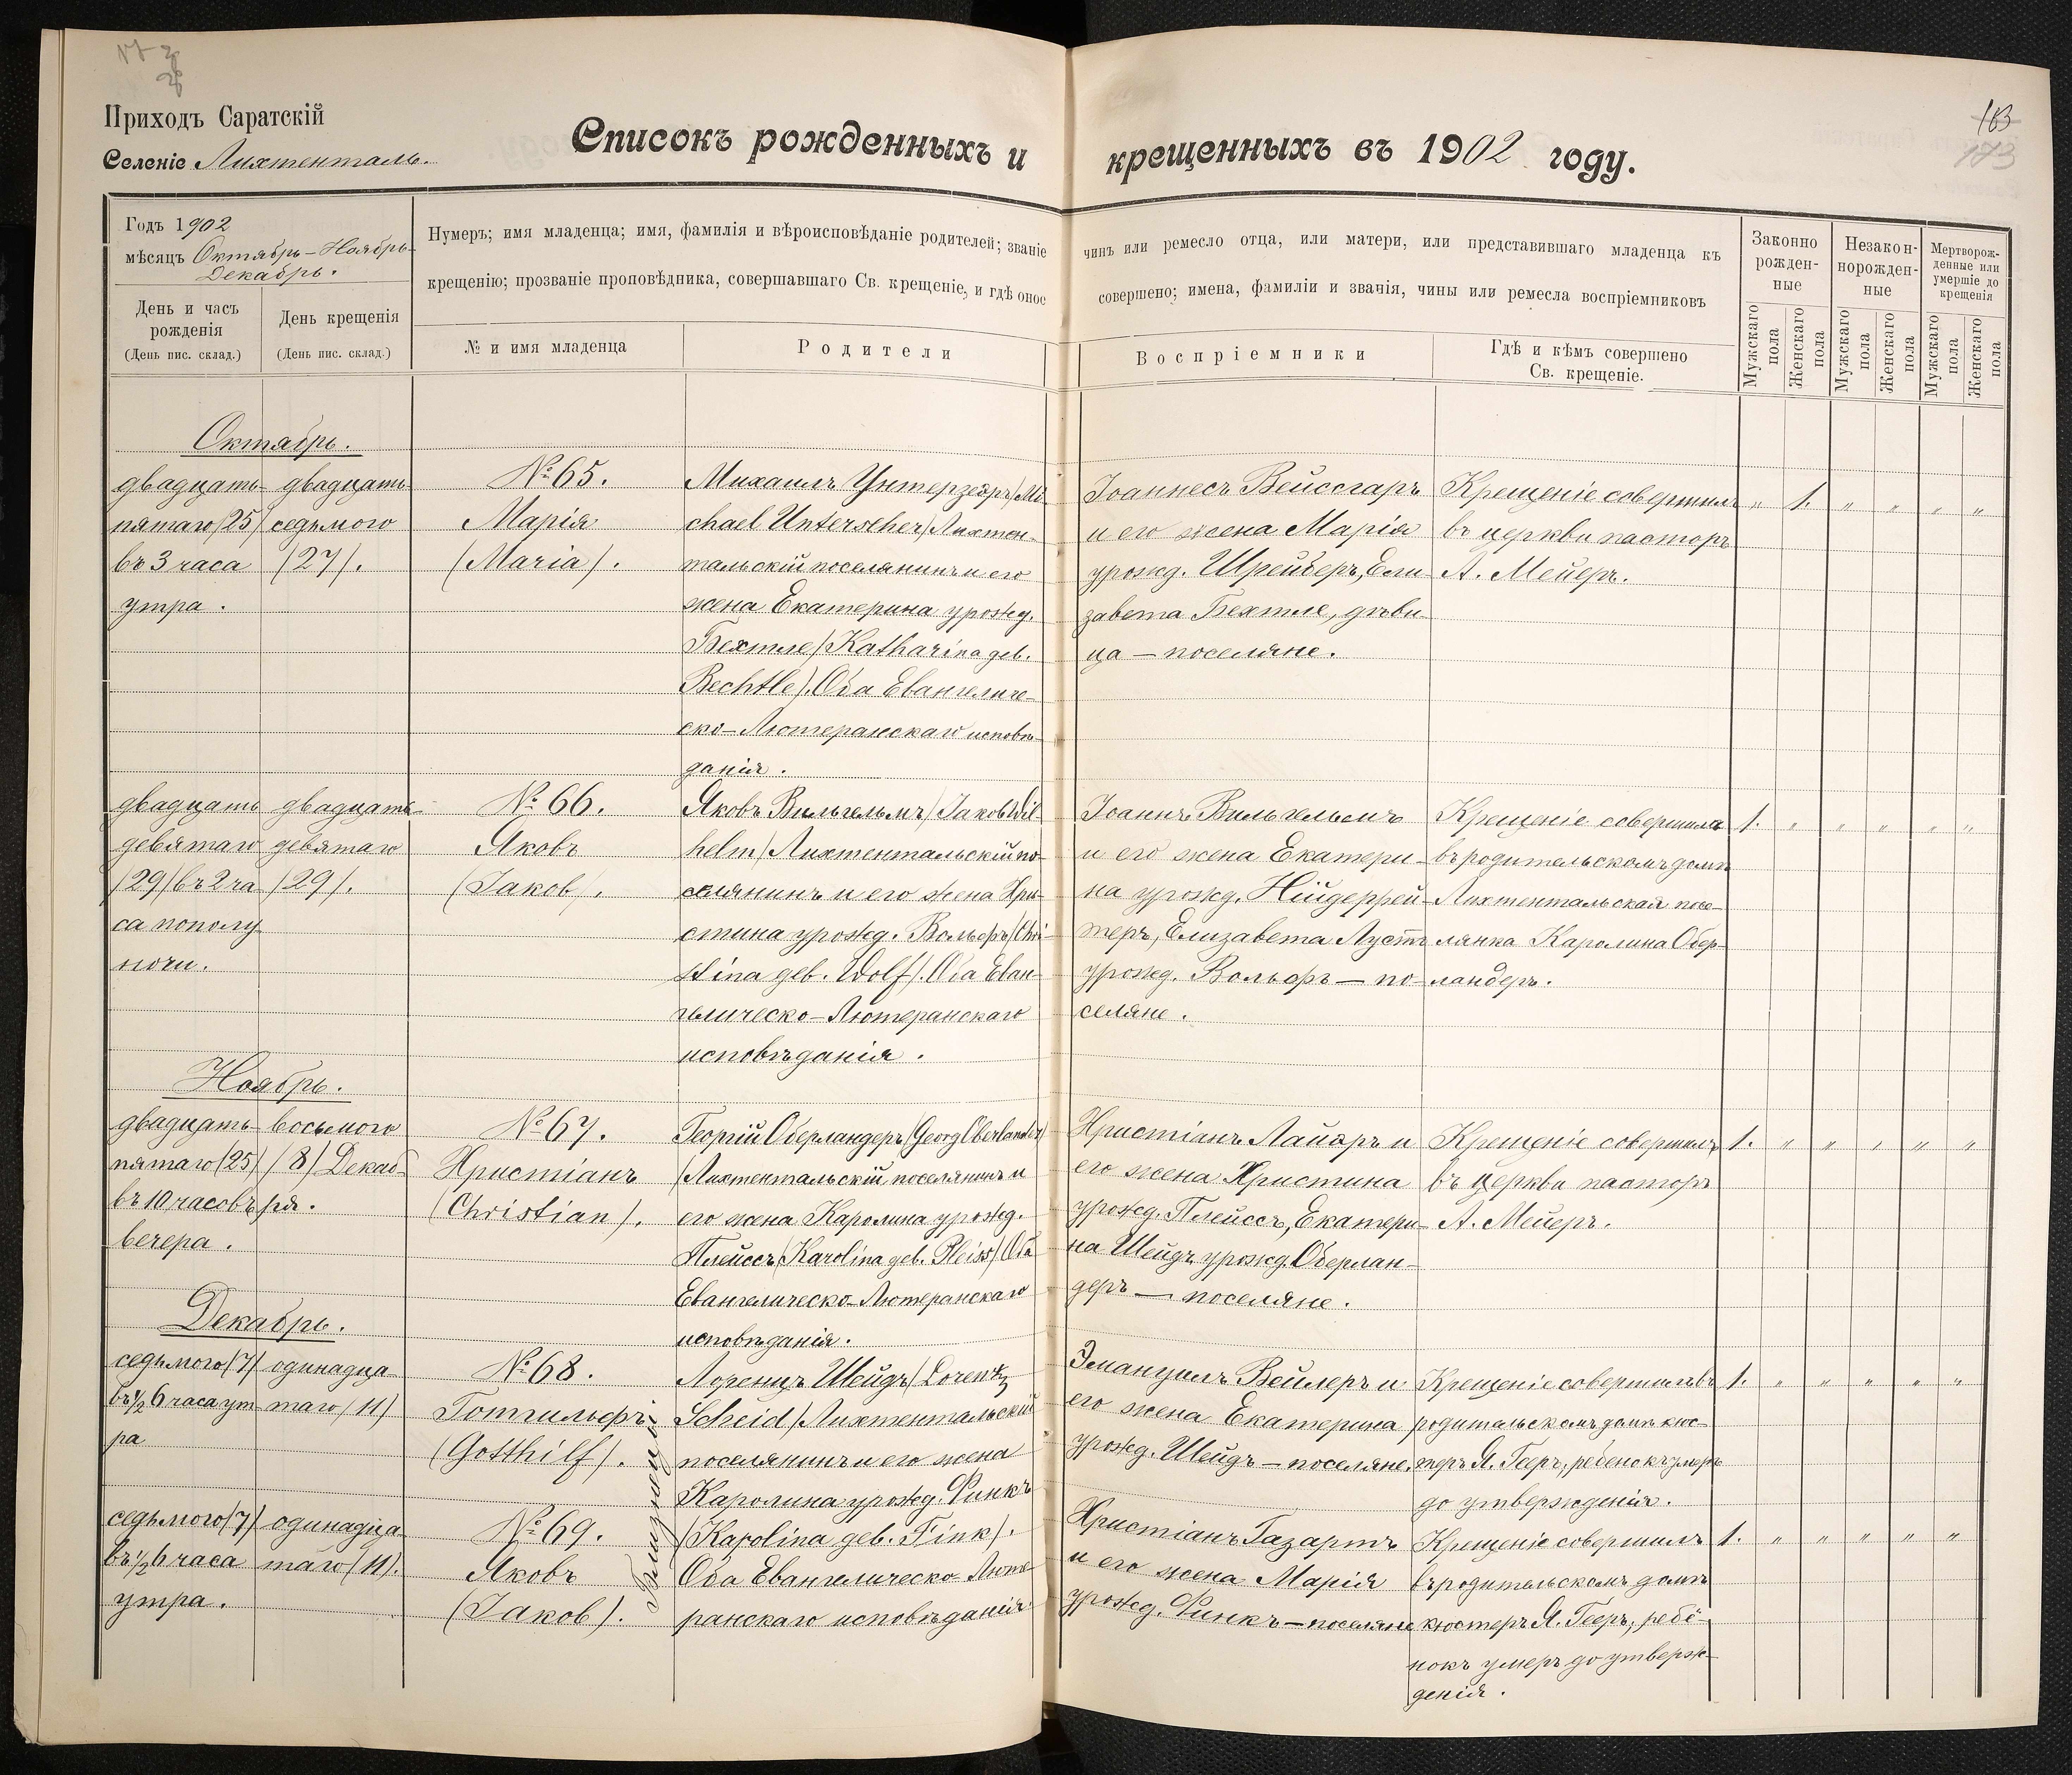 Приходъ Саратскій
Селеніе Лихтенталь.
Списокъ рожденныхъ и крещенныхъ въ 1902 году.
163
173
Годъ 1902
мѣсяцъ Октябрь-Ноябрь-
Декабрь.
День и часъ
рожденія
(День пис. склад.)
День крещенія
(День пис. склад.)
Нумеръ; имя младенца; имя, фамилія и вѣроисповѣданіе родителей; званіе чинъ или ремесло отца, или матери, или представившаго младенца къ
крещенію; прозваніе проповѣдника, совершавшаго Св. крещеніе, и гдѣ оное совершено; имена, фамиліи и званія, чины или ремесла воспріемниковъ
№ и имя младенца
Родители
Воспріемники
Гдѣ и кѣмъ совершено
Св. крещеніе.
Законно
рожден-
ные
Незакон-
норожден-
ные
Мертворож-
денные или
умершіе до
крещенія
Мужскаго
пола
Женскаго
пола
Мужскаго
пола
Женскаго
пола
Мужскаго
пола
Женскаго
пола
Октябрь.
двадцать-
пятаго (25)
въ 3 часа
утра.
двадцать
седьмого
(27).
№ 65.
Марія
(Maria).
Михаилъ Унтерзееръ (Mi-
chael Unterseher) Лихтен-
тальскій поселянинъ и его
жена Екатерина урожд.
Бехтле (Katharina geb.
Bechtle). Оба Евангеличе-
ско-Лютеранскаго исповѣ-
данія.
Іоаннесъ Вейссгаръ
и его жена Марія
урожд. Шрейберъ, Ели
завета Бехтле, дѣви-
ца — поселяне.
Крещеніе совершилъ
въ церкви пасторъ
А. Мейеръ.
" 1. " " " "
двадцать
девятаго
(29) въ 2 ча
са пополу
ночи.
двадцать
девятаго
(29).
№ 66.
Яковъ
(Jakob).
Яковъ Вильгельмъ (Jakob Wil-
helm) Лихтентальскій по-
селянинъ и его жена Хри-
стина урожд. Вольфъ (Chri-
stina geb. Wolf). Оба Еван-
гелическо-Лютеранскаго
исповѣданія.
Іоаннъ Вильгельмъ
и его жена Екатери-
на урожд. Нійдеррей-
теръ, Елизавета Лустъ
урожд. Вольфъ — по-
селяне.
Крещеніе совершила
въ родительскомъ домѣ
Лихтентальская посе-
лянка Каролина Обер-
ландеръ.
1. " " " " "
Ноябрь.
двадцать
пятаго (25)
въ 10 часовъ
вечера.
восьмого
(8) Декаб-
ря.
№ 67.
Христіанъ
(Christian).
Георгій Оберландеръ (Georg Oberlander)
Лихтентальскій поселянинъ и
его жена Каролина урожд.
Плейссъ (Karolina geb. Pleiss) Оба
Евангелическо-Лютеранскаго
исповѣданія.
Христіанъ Лайеръ и
его жена Христина
урожд. Плейссъ, Екатери-
на Шейдъ урожд. Оберлан-
деръ — поселяне.
Крещеніе совершилъ
въ церкви пасторъ
А. Мейеръ.
1. " " " " "
Декабрь.
седьмого (7)
въ ½ 6 часа ут
ра
одинадца
таго (11)
№ 68.
Готтильфъ
(Gotthilf).
Близнецы
Лоренцъ Шейдъ (Lorentz
Scheid) Лихтентальскій
поселянинъ и его жена
Каролина урожд. Финкъ
(Karolina geb. Fink).
Оба Евангелическо Люте
ранскаго исповѣданія.
Эмануилъ Вейлеръ и
его жена Екатерина
урожд. Шейдъ — поселяне.
Крещеніе совершилъ въ
родительскомъ домѣ кюс-
теръ Я. Гееръ, ребенокъ умеръ
до утвержденія.
1. " " " " "
седьмого (7)
въ ½ 6 часа
утра.
одинадца
таго (11).
№ 69.
Яковъ
(Jakob).
Христіанъ Газартъ
и его жена Марія
урожд. Финкъ — поселяне
Крещеніе совершилъ
въ родительскомъ домѣ
кюстеръ Я. Гееръ, ребё-
нокъ умеръ до утверж-
денія.
1. " " " " "